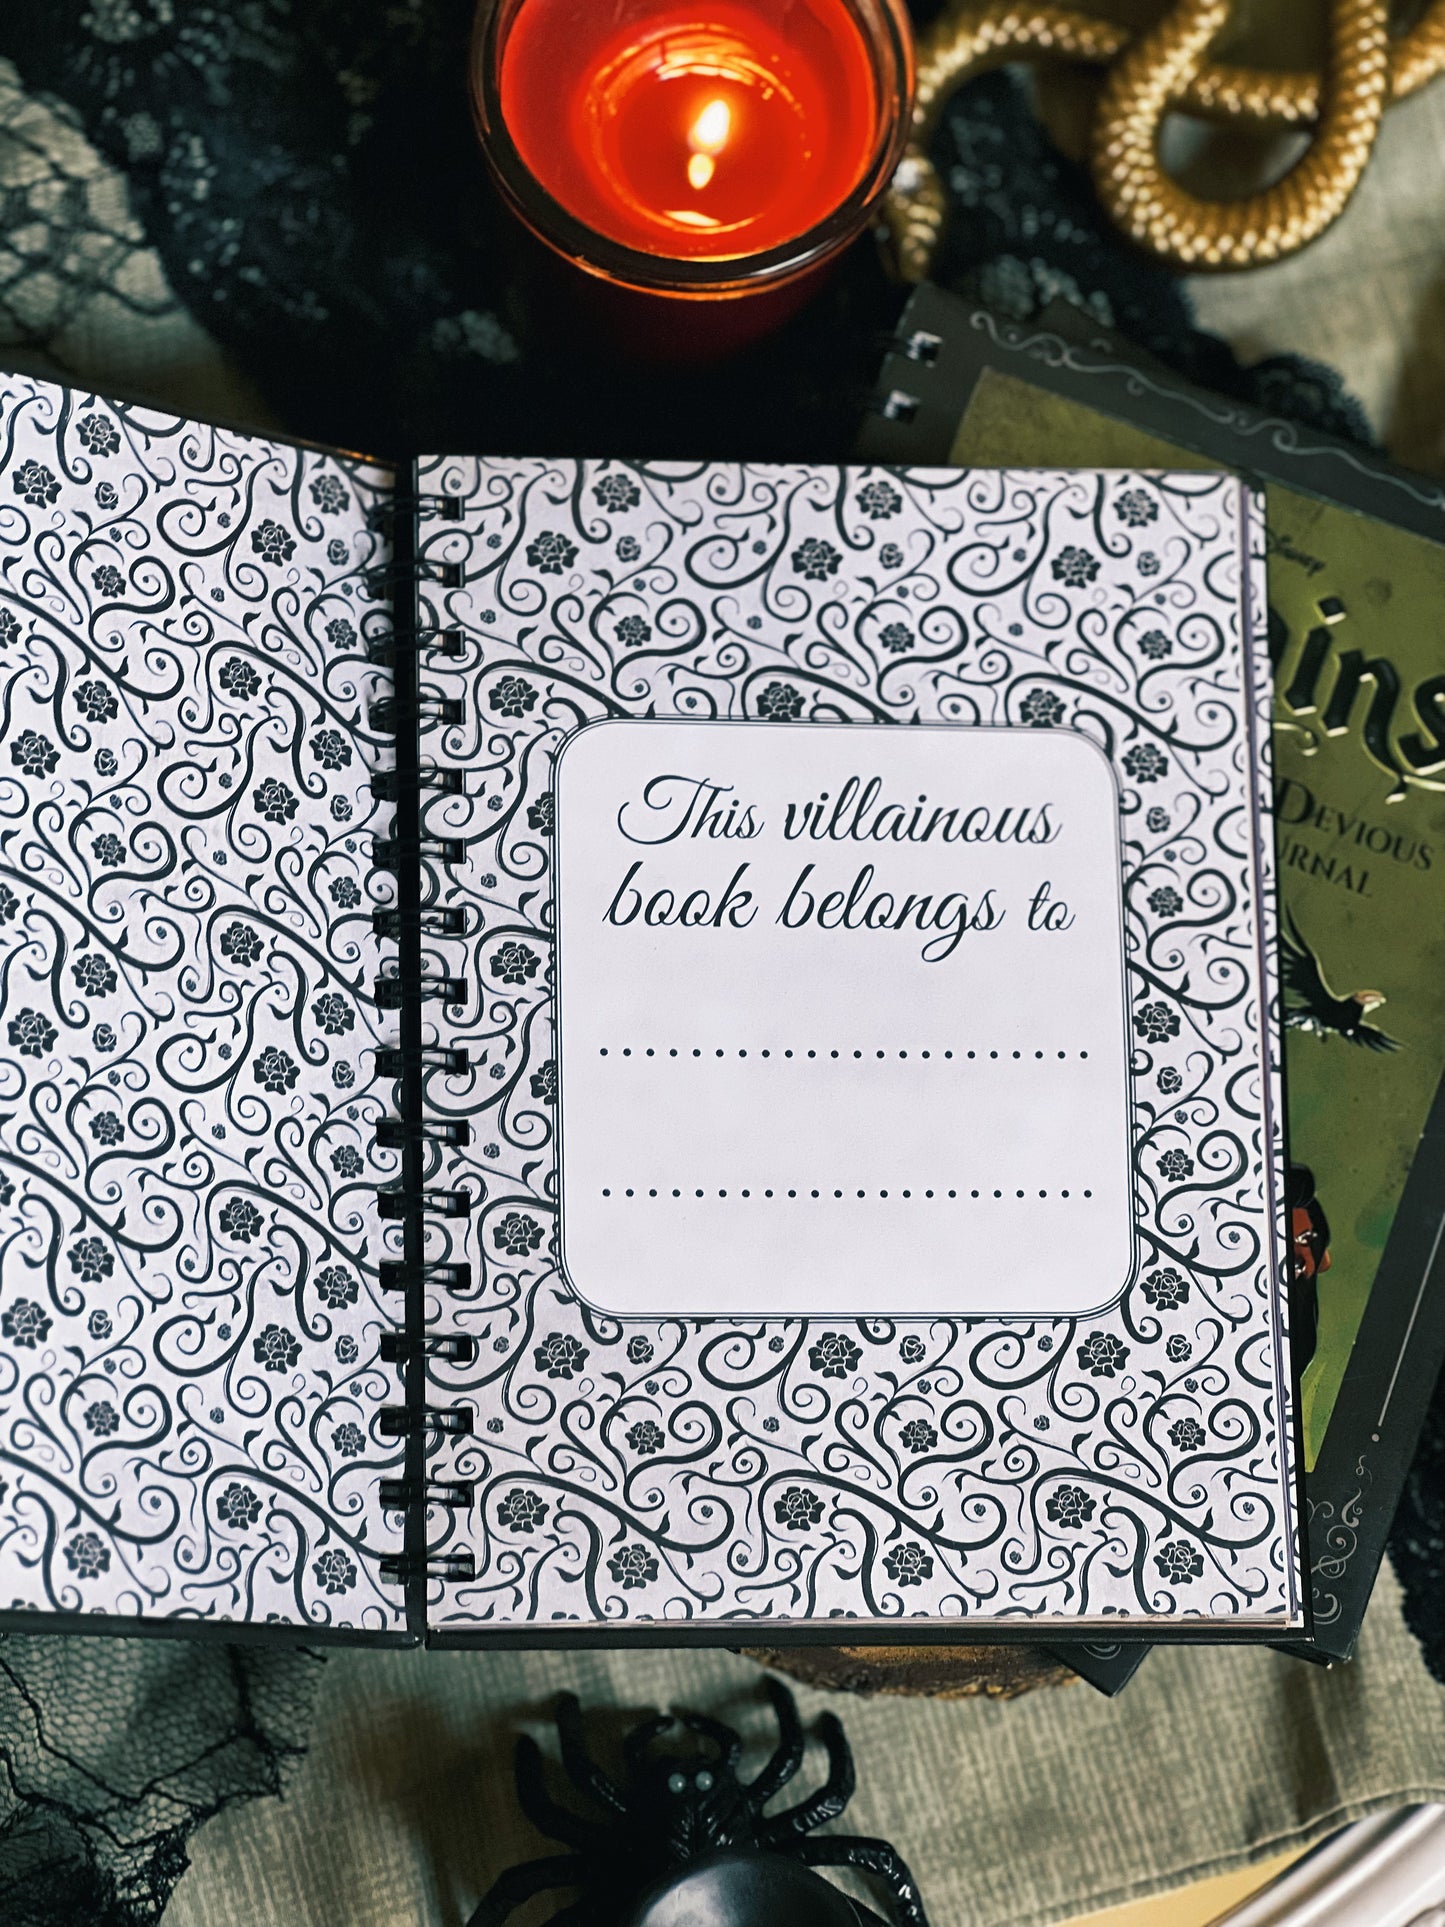 This villainous
book belongs to
Disney
Devious